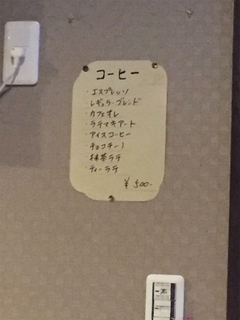 コーヒー
・エスプレッソ
・レギュラーブレンド
・カフェオレ
・ラテマキアート
・アイスコーヒー
・チョコチーノ
・抹茶ラテ
・ティーラテ
¥500-